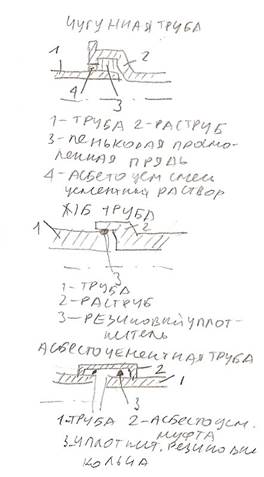 ЧУГУННАЯ ТРУБА
1
2
4
3
1-ТРУБА 2-РАСТРУБ
3-ПЕНЬКОВАЯ ПРОСМО-
ЛЕННАЯ ПРЯДЬ
4-АСБЕСТОЦЕМ СМЕСЬ
ЦЕМЕНТНЫЙ РАСТВОР
Ж/Б ТРУБА
1
2
3
1-ТРУБА
2-РАСТРУБ
3-РЕЗИНОВЫЙ УПЛОТ-
НИТЕЛЬ
АСБЕСТОЦЕМЕНТНАЯ ТРУБА
2
1
3
1.ТРУБА 2-АСБЕСТОЦЕМ.
МУФТА
3.УПЛОТНИТ. РЕЗИНОВЫЕ
КОЛЬЦА